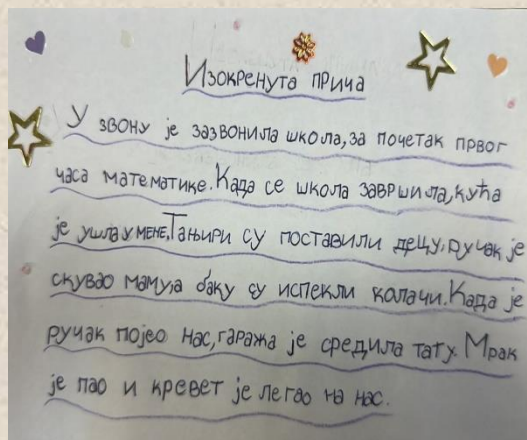 Изокренута прича
У звону је зазвонила школа, за почетак првог
часа математике. Када се школа завршила, кућа
је ушла у мене, Тањири су поставили децу, ручак је
скувао маму, а баку су испекли колачи. Када је
ручак појео нас, гаража је средила тату. Мрак
је пао и кревет је легао на нас.